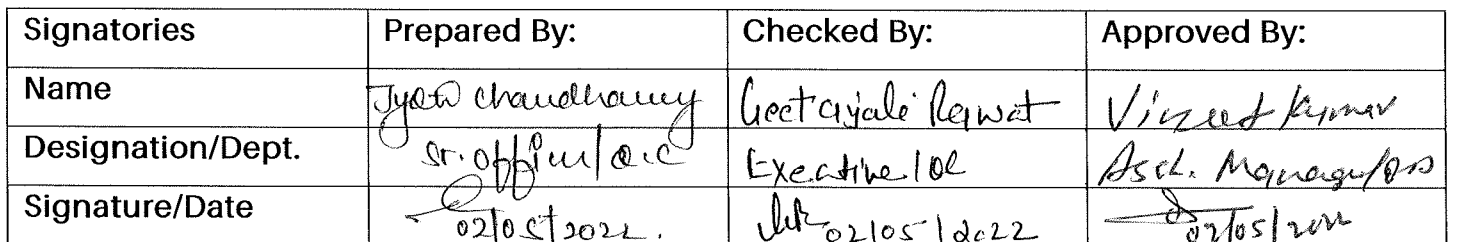 Signatories Prepared By: Checked By: Approved By:
Name Jyoti Chaudhary Geetanjali Rawat Vineet Kumar
Designation/Dept. Sr. Officer/Q.C Executive/QC Asst. Manager/
Signature/Date 02/05/2022. 02/05/2022 02/05/2022